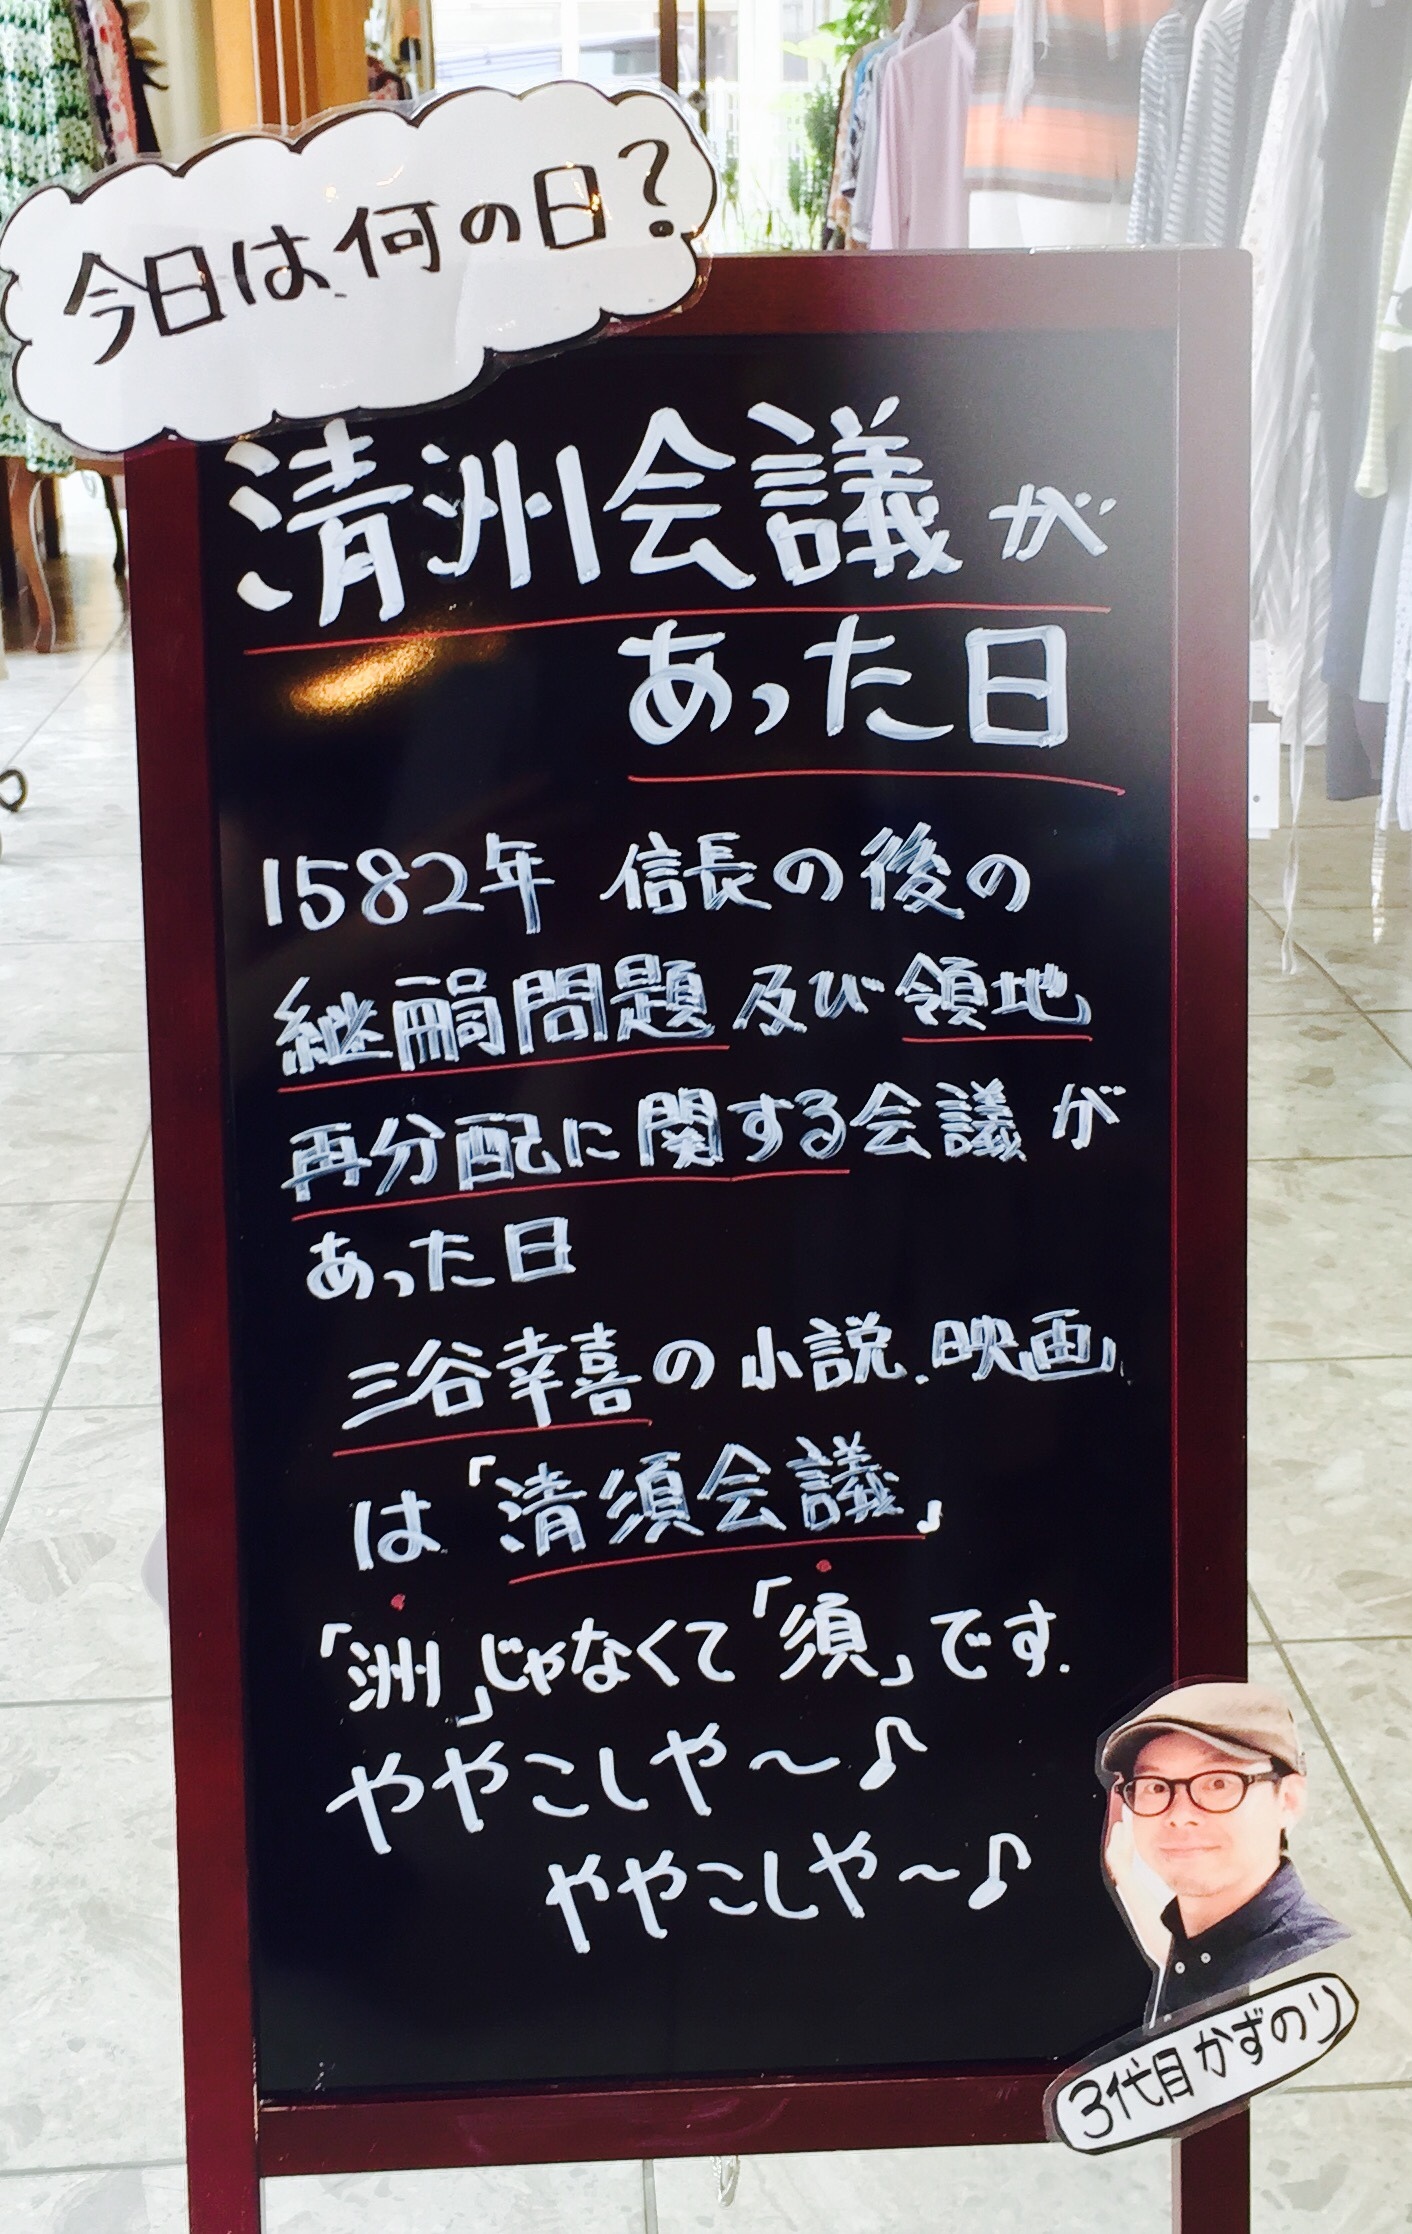 今日は何の日?
清洲会議が
あった日
1582年 信長の後の
継嗣問題及び領地
再分配に関する会議が
あった日
三谷幸喜の小説.映画
は「清須会議」
「洲」じゃなくて「須」です.
ややこしや〜♪
ややこしや〜♪
3代目かずのり